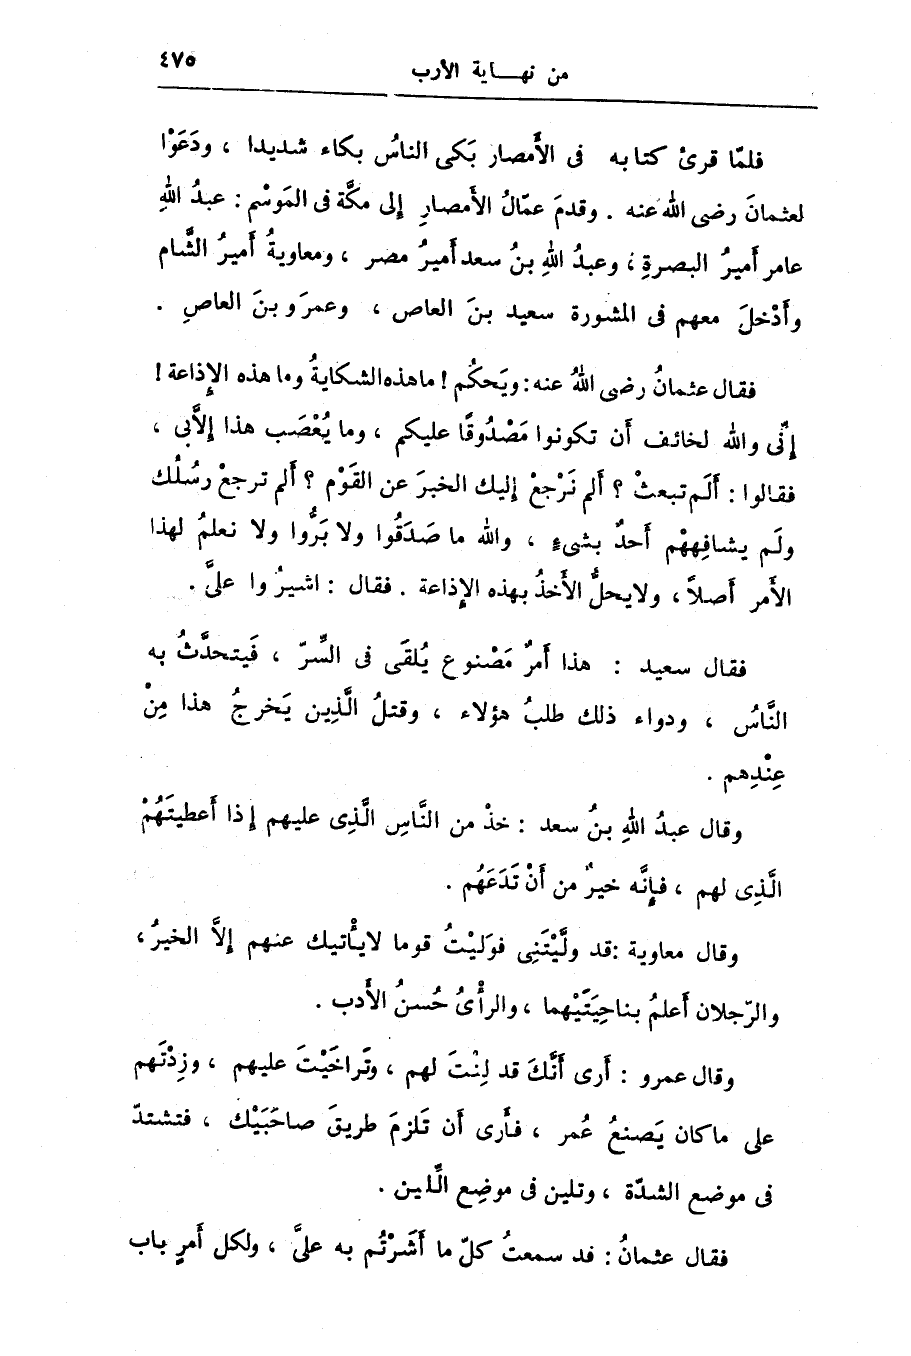 ٤٧٥
من نهاية الأرب
فلمّا قرئ كتابه فى الأَمصار بَكى الناسُ بكاء شديدا ، ودَعَوْا
لعثمانَ رضى الله عنه . وقدمَ عمّالُ الأمصارِ إلى مكَّة فى المَوسْم : عبدُ اللهِ
عامر أَميرُ البصرةِ ، وعبدُ اللهِ بنُ سعد أَميرُ مصر ، ومعاويةُ أَميرُ الشَّام
وأَدْخلَ معهم فى المشورة سعيد بنَ العاص ، وعمرَو بنَ العاصِ .
فقال عثمانُ رضى اللهُ عنه : ويَحكُم ! ما هذه الشكايةُ وما هذه الإذاعة !
إنِّى والله لخائف أَن تكونوا مَصْدُوقًا عليكم ، وما يُعْصَب هذا إلاَّبى ،
فقالوا : أَلَم تبعثْ ؟ ألم نَرْجعْ إليك الخبرَ عن القَوْم ؟ أَلم ترجعْ رسُلُك
ولَم يشافِههْم أَحدٌ بشىءٍ ، والله ما صَدَقُوا ولا بَرُّوا ولا نعلمُ لهذا
الأَمر أَصلاً ، ولا يحلُّ الأَخذُ بهذه الإذاعة . فقال : اشيرُوا علىَّ .
فقال سعيد : هذا أَمرٌ مَصْنوع يُلقَى فى السِّرّ ، فَيتحدَّثُ به
النَّاسُ ، ودواء ذلك طلبُ هؤلاء ، وقتلُ الَّذِين يَخرجُ هذا مِنْ
عِنْدِهم .
وقال عبدُ اللهِ بنُ سعد : خذْ من النَّاسِ الَّذِى عليهم إذا أَعطيتَهُمْ
الَّذِى لهم ، فإنَّه خيرٌ من أَنْ تَدَعَهُم .
وقال معاوية : قد ولَّيْتَنِى فوَليْتُ قوما لايأْتيك عنهم إلاَّ الخيرُ ،
والرّجلان أَعلمُ بناحِيَتَيْهما ، والرأْىُ حُسنُ الأَدب .
وقال عمرو : أَرى أَنَّكَ قد لِنْتَ لهم ، وتَراخَيْتَ عليهم ، وزِدْتَهم
على ماكان يَصنعُ عُمر ، فأَرى أَن تَلزمَ طريقَ صاحَبَيْك ، فتشتدّ
فى موضع الشدّة ، وتلين فى موضِع الِّلين .
فقال عثمانُ : قد سمعتُ كلّ ما أَشَرْتُم به علىَّ ، ولكل أَمرٍ باب